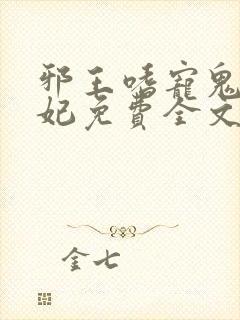 邪王嗜寵鬼
妃免費全文
金七